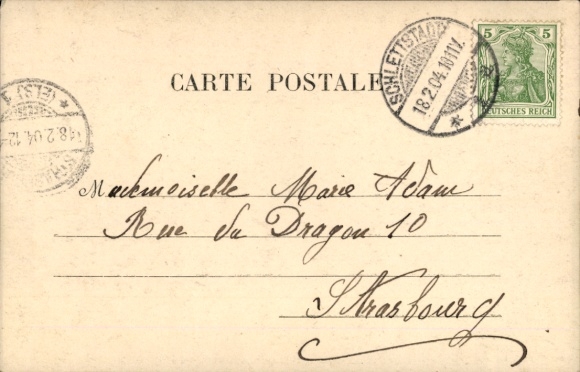 CARTE POSTALE
SCHLETTSTADT
18.2.04.10-11V.
5 5
DEUTSCHES REICH
18.2.04.12-
Mademoiselle Marie Adam
Rue du Dragon 10
Strasbourg